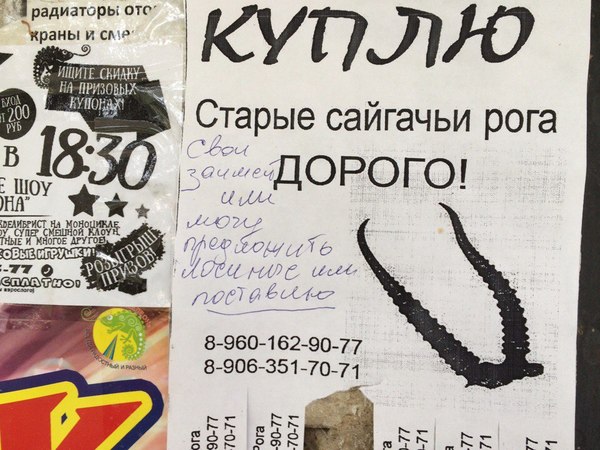 радиаторы ото
краны и сме
ИЩИТЕ СКИДКУ
НА ПРИЗОВЫХ
КУПОНАХ!
ВХОД
ОТ 200
РУБ
В 18:30
Е ШОУ
ОНА"
КВЕЛИБРИСТ НА МОНОЦИКЛЕ,
ШОУ, СУПЕР СМЕШНОЙ КЛОУН,
ТНЫЕ И МНОГОЕ ДРУГОЕ!
СОВЫЕ ИГРУШКИ!
-77
СПЛАТНО!
РОЗЫГРЫШ
ПРИЗОВ!
И РАЗНЫЙ
КУПЛЮ
Старые сайгачьи рога
ДОРОГО!
свои
заимей
или
могу
предложить
лосиные или
поставлю
8-960-162-90-77
8-906-351-70-71
Рога
-90-77
-70-71
Рога
-90-77
-70-71
-90-77
-70-71
-90-77
-70-71
рога
-90-77
-70-71